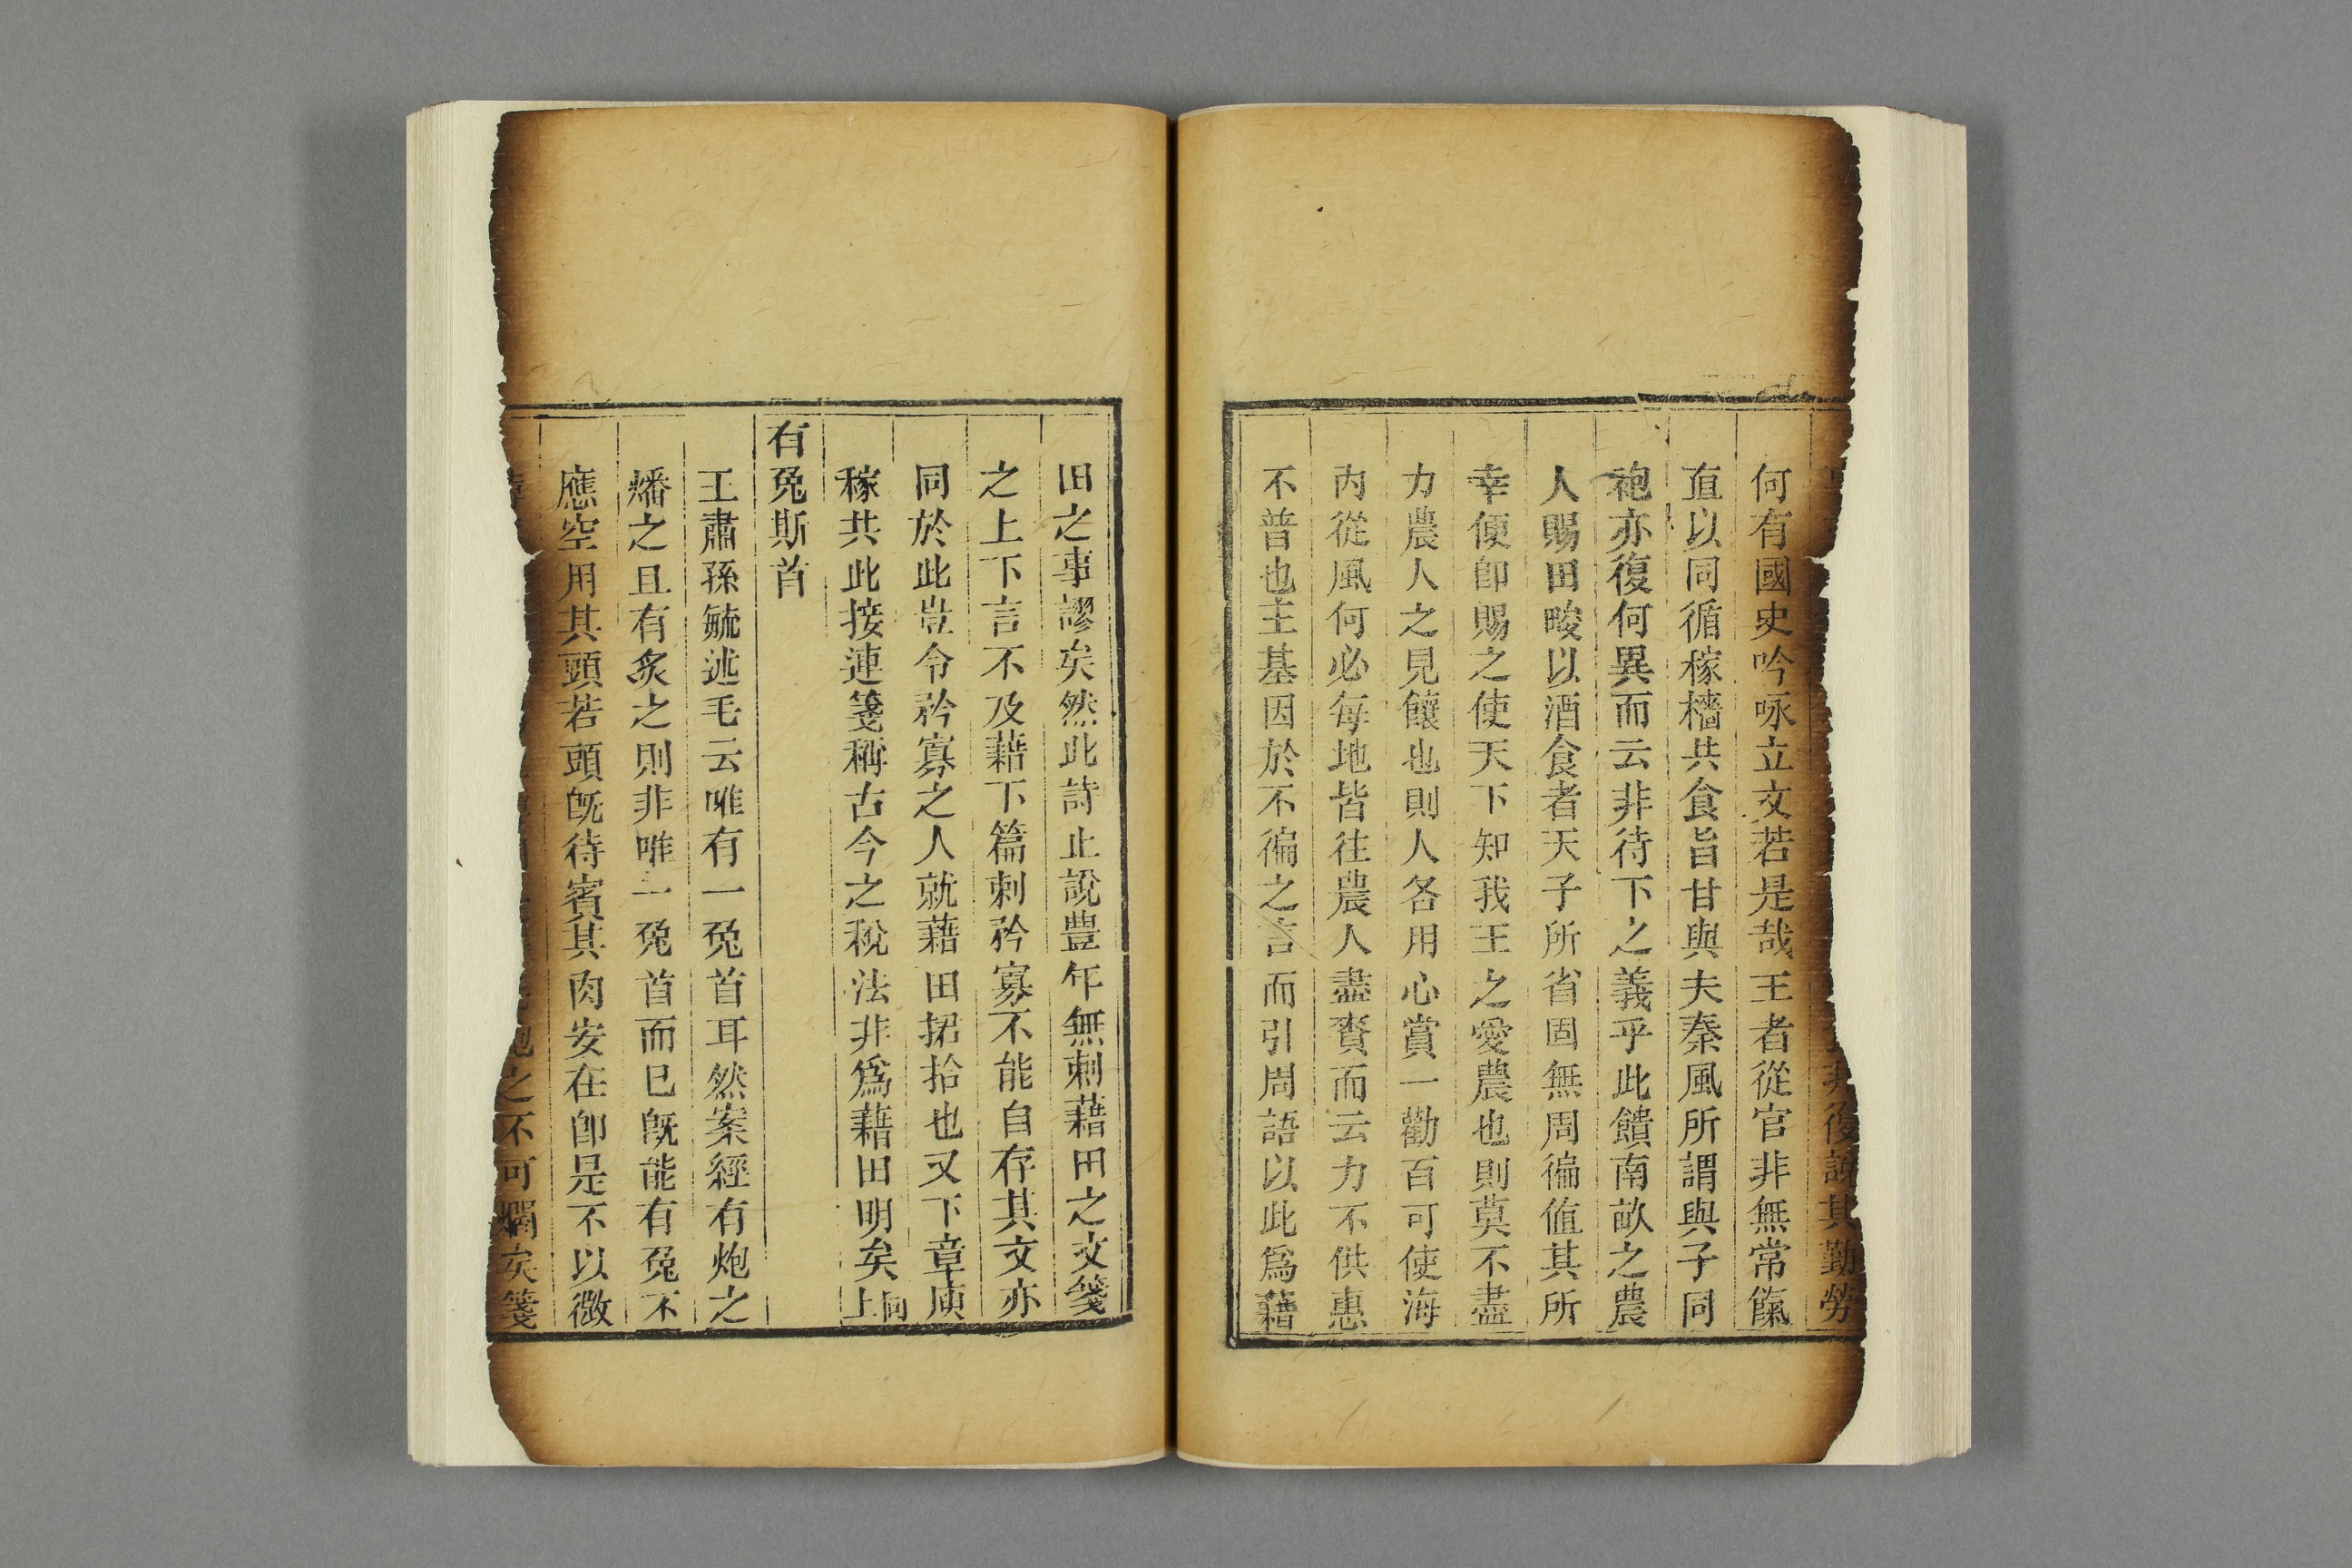 非復說其勤勞
何有國史吟咏立文若是哉王者從官非無常餼
直以同循稼穡共食旨甘與夫秦風所謂與子同
袍亦復何異而云非待下之義乎此饋南畝之農
人賜田畯以酒食者天子所省固無周徧值其所
幸便卽賜之使天下知我王之愛農也則莫不盡
力農人之見饟也則人各用心賞一勸百可使海
內從風何必每地皆往農人盡賚而云力不供惠
不普也王基因於不徧之言而引周語以此爲藉
田之事謬矣然此詩止說豊年無刺藉田之文箋
之上下言不及藉下篇刺矜寡不能自存其文亦
同於此豈令矜寡之人就藉田捃拾也又下章庾
稼共此接連箋稱古今之稅法非爲藉田明矣同上
有兔斯首
王肅孫毓述毛云唯有一兔首耳然案經有炮之
燔之且有炙之則非唯一兔首而已旣能有兔不
應空用其頭若頭旣待賓其肉安在卽是不以微
炮之不可爛矣箋